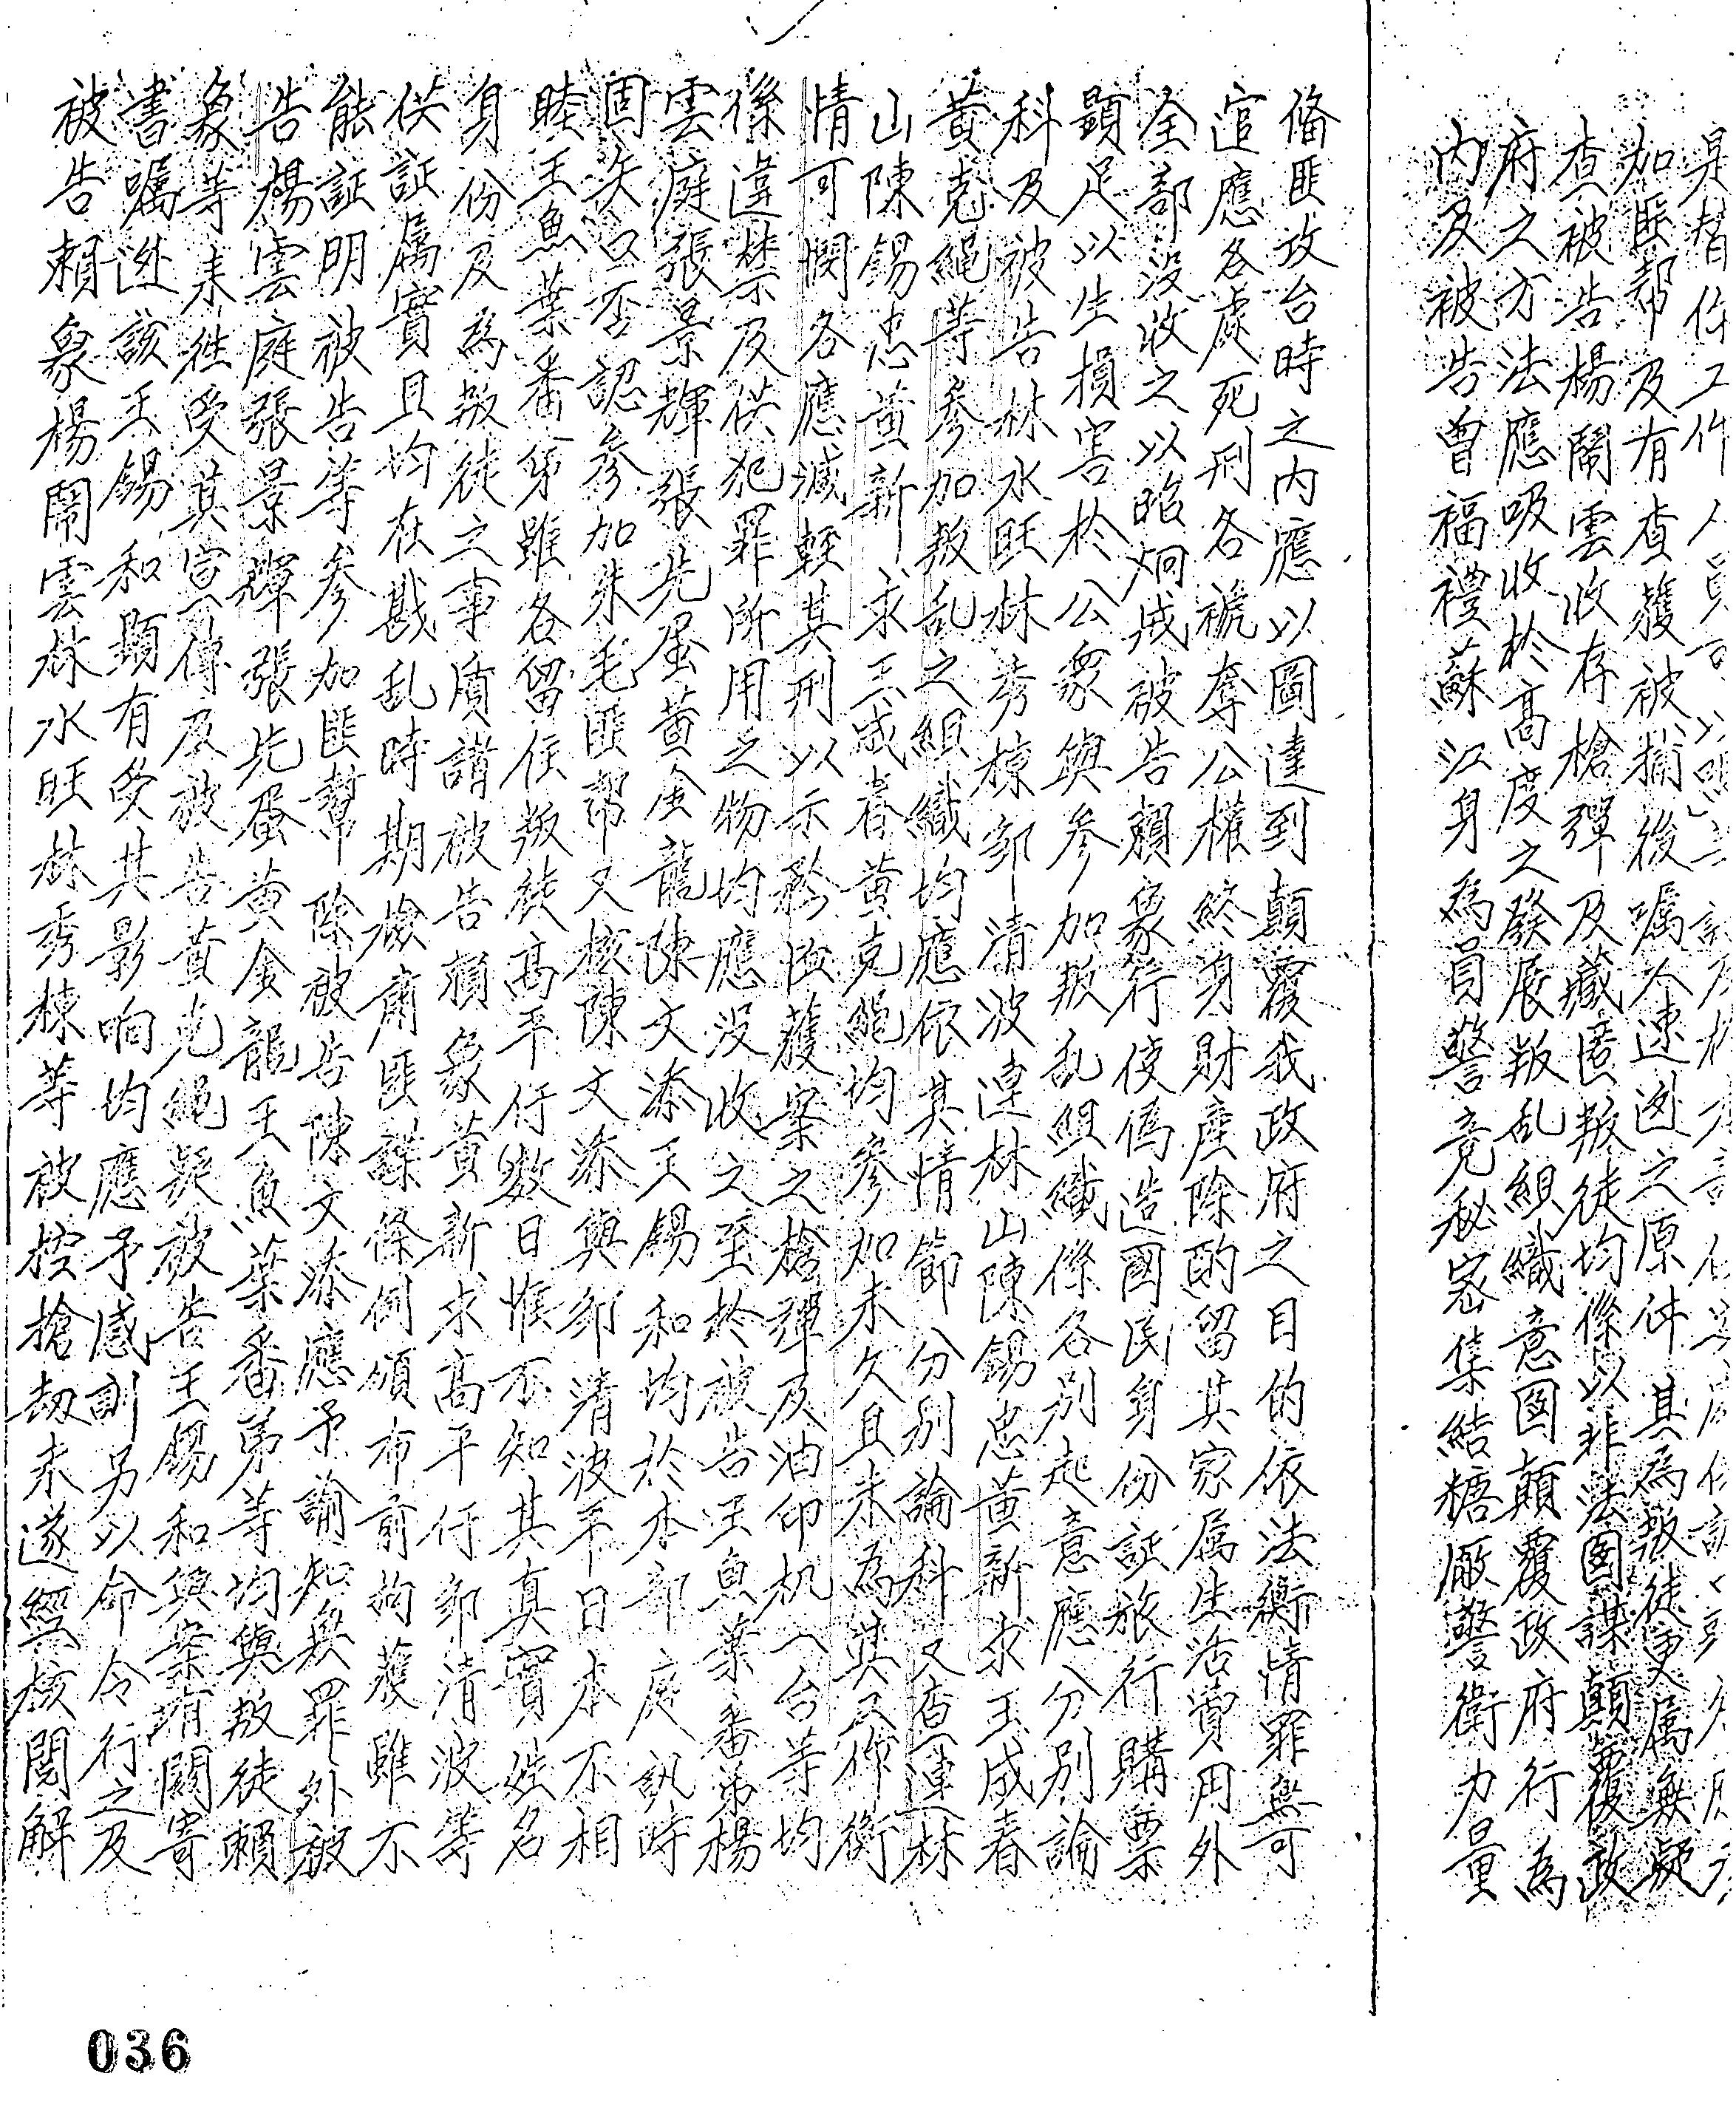 加匪幇及有查獲被捕後囑令速逃之原件其為叛徒更属無疑
查被告楊鬧雲收存槍彈及藏匿叛徒均係以非法图謀顛覆政
府之方法應吸收於高度之發展叛乱組織意図顛覆政府行為
內及被告曾福禮蘇江身為員警竟秘密集結糖廠警衛力量
俻匪攻台時之内應以圖達到顛覆我政府之目的依法衡情罪無可
逭應各處死刑各褫奪公權終身財產除酌留其家属生活費用外
全部没收之以昭烱戒被告賴象行使偽造國民身份証旅行購票
顕足以生損害於公衆與參加叛乱組織係各別起意應分別論
科及被告林水旺林秀棟郭清波連林山陳錫忠黄新求王成春
黄克繩等參加叛乱之組織均應依其情節分別論科又查連林
山陳錫忠黄新求王成春黄克繩均參加未久且未為其工作衡
情可憫各應减輕其刑以示矜恤獲案之槍彈及油印机一台等均
係違禁及供犯罪所用之物均應没收之至於被告王魚葉番弟楊
雲庭張景輝張先蛋黄金龍陳文添王錫和均於本部庭訊時
固矢口否認參加朱毛匪幇又核陳文添與郭清波平日本不相
睦王魚葉番弟雖各留住叛徒高平仔數日惟不知其真實姓名
身份及為叛徒之事質諸被告賴象黄新求高平仔郭清波等
供証属實且均在戡乱時期檢肅匪諜條例頒布前拘獲雖不
能証明被告等參加匪幫除被告陳文添應予諭知無罪外被
告楊雲庭張景輝張先蛋黄金龍王魚葉番弟等均與叛徒賴
象等来往受其宣傳及被告黄克繩疑被告王錫和與案有關寄
書囑逃該王錫和顕有受其影响均應予感訓另以命令行之及
被告賴象楊鬧雲林水旺林秀棟等被控搶刼未遂經核閲解
036